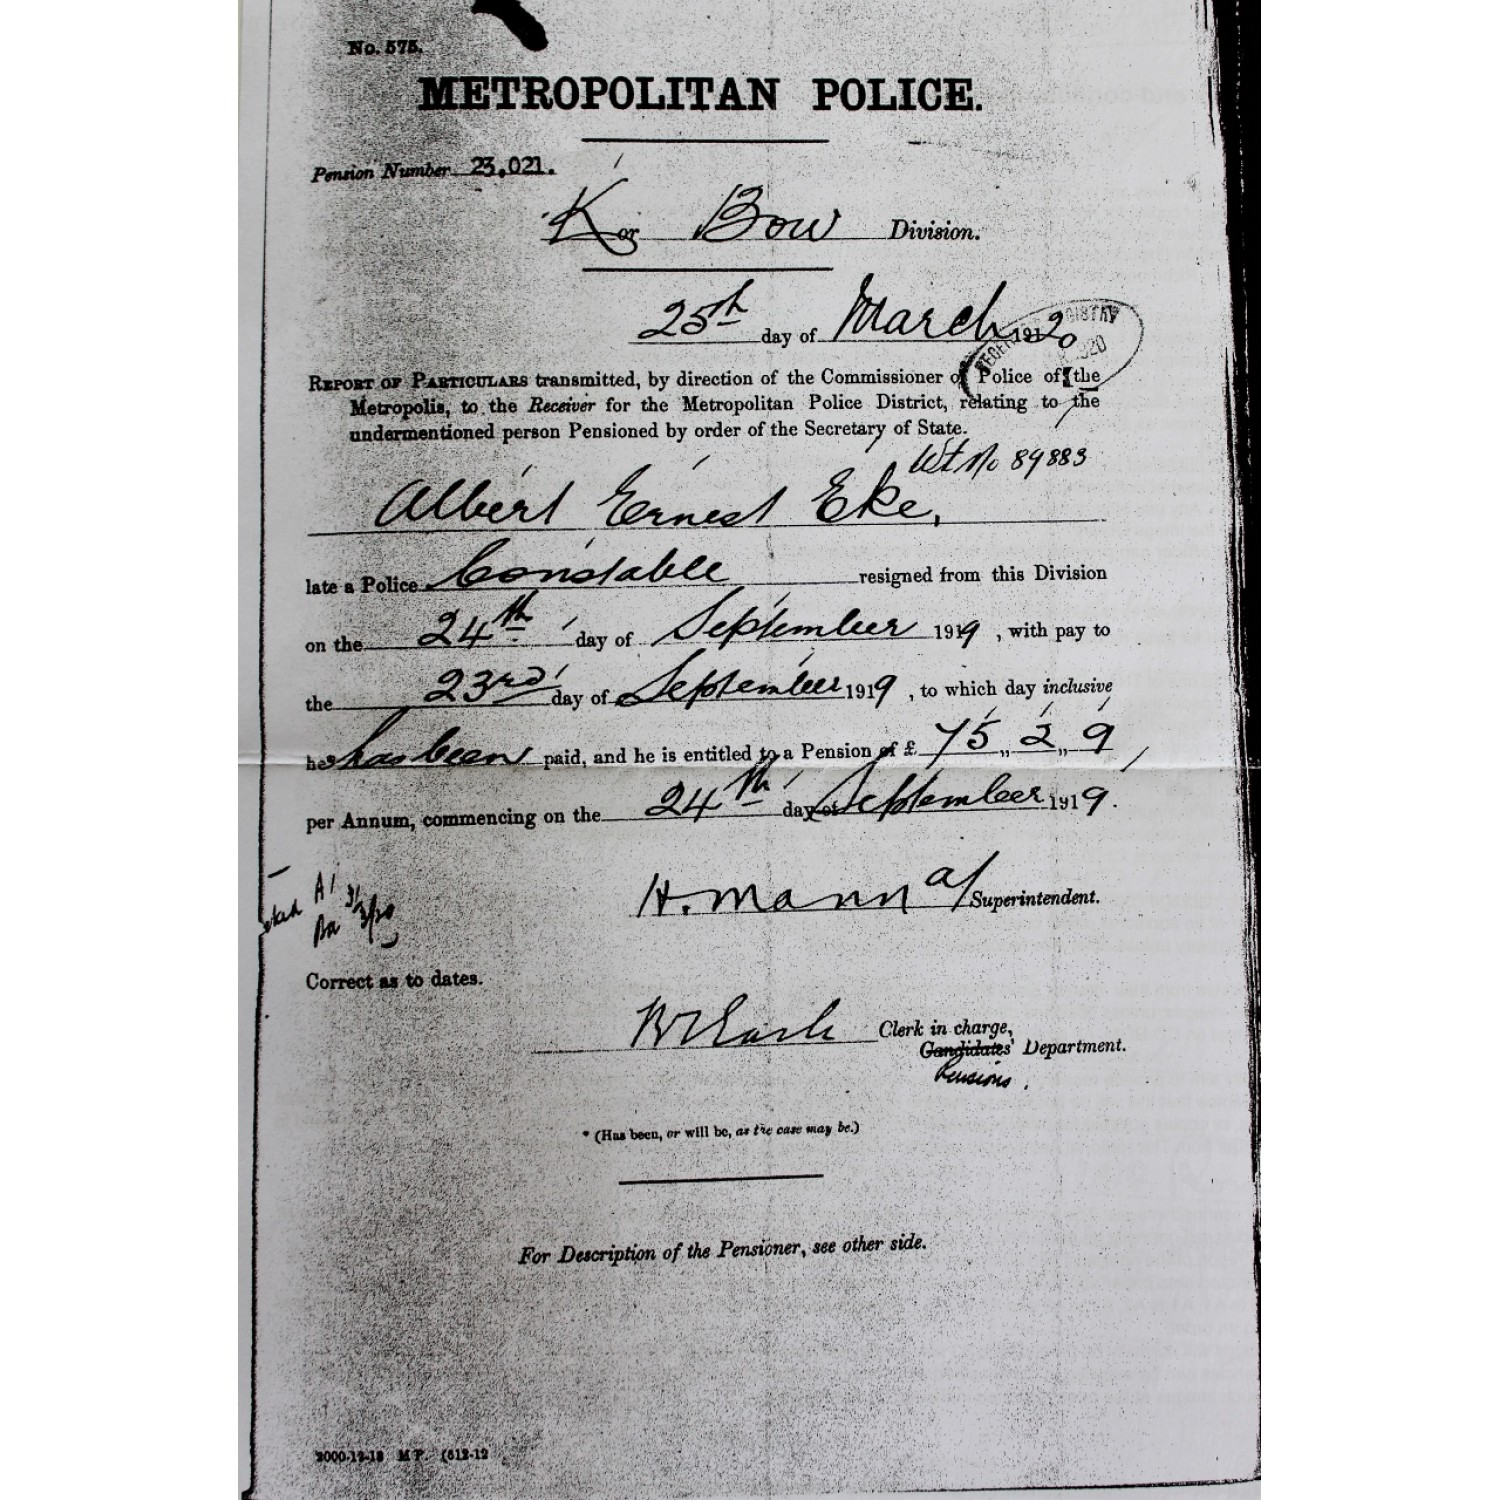 No. 575.
METROPOLITAN POLICE.
Pension Number 23,021.
K or Bow Division.
25th day of March 1920
REPORT OF PARTICULARS transmitted, by direction of the Commissioner of Police of the
Metropolis, to the Receiver for the Metropolitan Police District, relating to the
undermentioned person Pensioned by order of the Secretary of State.
Wt No 89883
Albert Ernest Eke,
late a Police Constable resigned from this Division
on the 24th day of September 1919, with pay to
the 23rd day of September 1919, to which day inclusive
he* has been paid, and he is entitled to a Pension of £ 75 ,, 2 ,, 9
per Annum, commencing on the 24th day of September 1919.
H. Mann a/ Superintendent.
Correct as to dates.
Clerk in charge,
Candidates' Department.
Pensions.
* (Has been, or will be, as the case may be.)
For Description of the Pensioner, see other side.